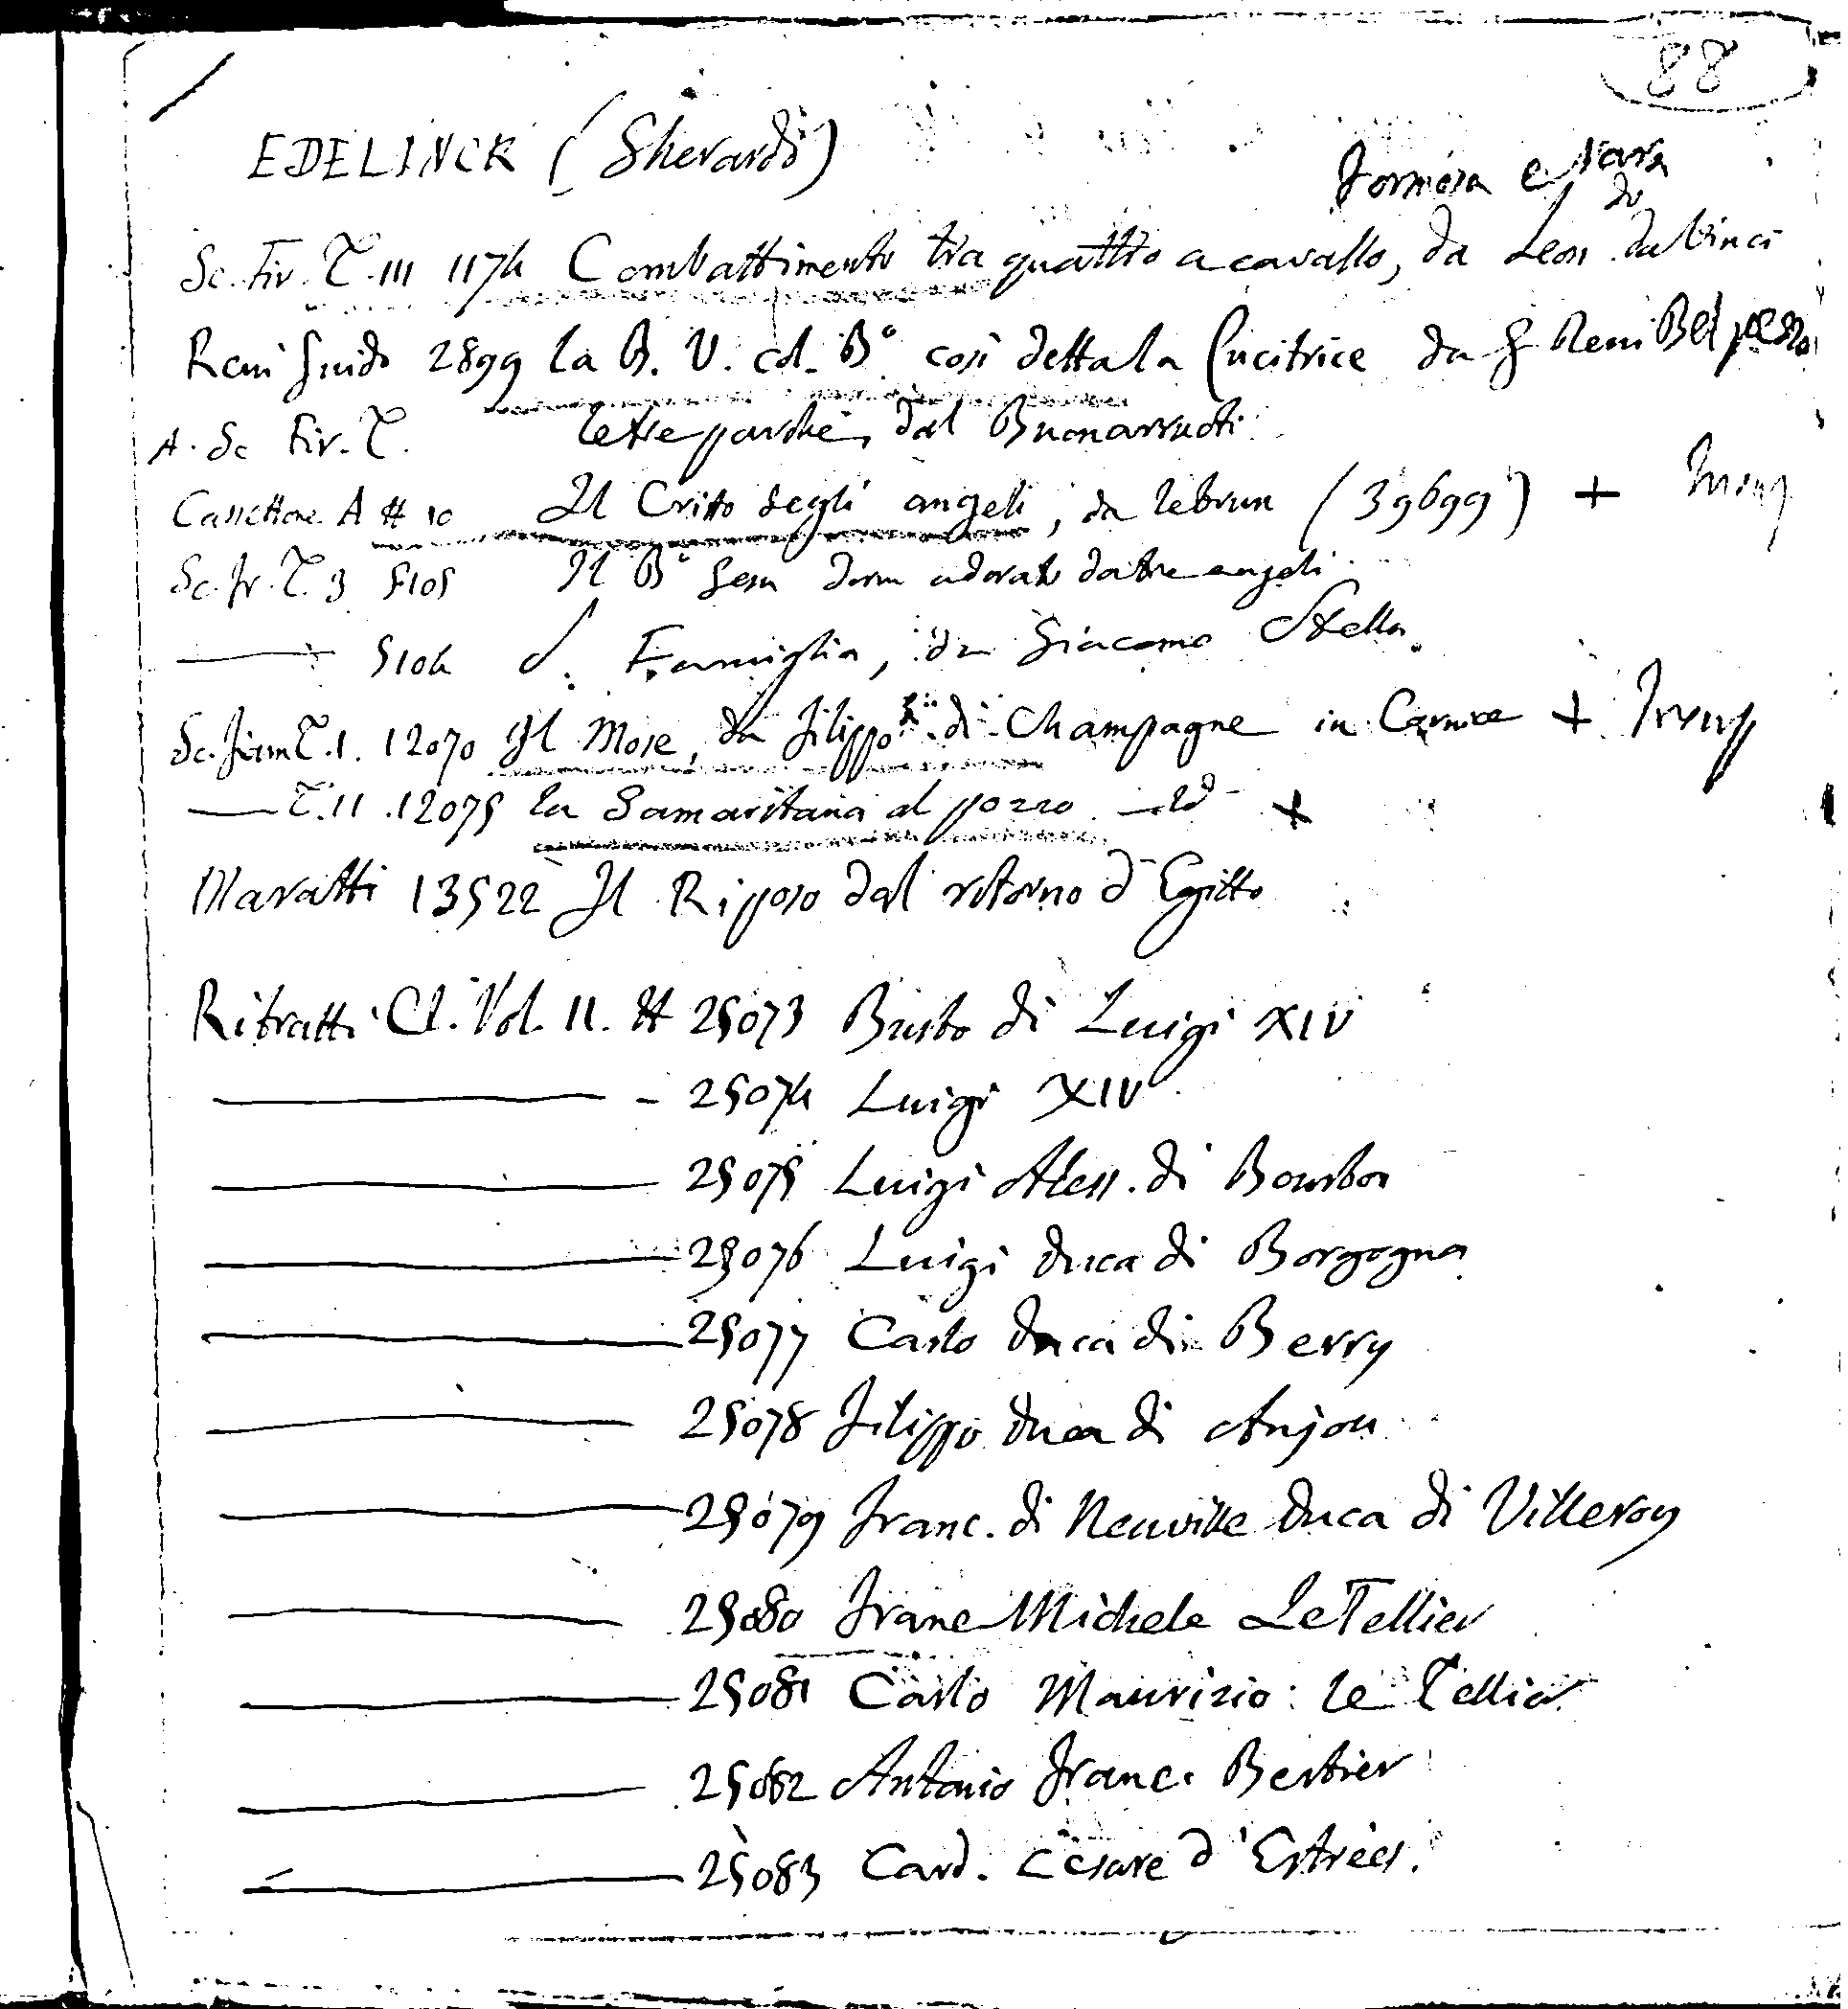 88
EDELINCK (Gherardo)
Formosa e rara
Sc. Fir. T. III 1174 Combattimento tra quattro a cavallo, da Leon. da Vinci
Reni Guido 2899 la B. V. col. B° così detta la Cucitrice da G Reni Bel pezzo
A. Sc Fir. T. le tre parche, dal Buonarruoti
Cassettone A # 10 Il Cristo degli angeli, da lebrun (39699) +
Sc. fr. T. 3 5105 Il B° Gesu dorm adorato da tre angeli
5104 S. Famiglia, da Giacomo Stella
Sc. fiam T. I. 12070 Il Mose, da Filippo di Champagne in Cornice +
T. II. 12075 la Samaritana al pozzo - id - +
Maratti 13522 Il Riposo dal ritorno d'Egitto
Ritratti Cl. Vol. II. # 25073 Busto di Luigi XIV
25074 Luigi XIV
25075 Luigi Aless. di Bourbon
25076 Luigi duca di Borgogna
25077 Carlo duca di Berry
25078 Filippo duca di Anjou
25079 Franc. di Neuville duca di Villeroy
25080 Franc Michele Le Tellier
25081 Carlo Maurizio le Tellier
25082 Antonio Franc. Bertier
25083 Card. Cesare d'Estrées.